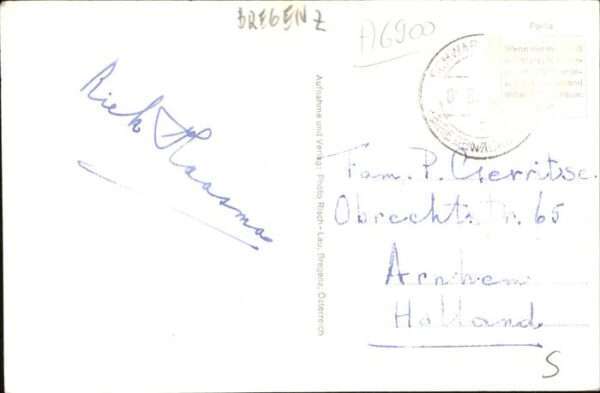 BREGENZ
A6900
Porto
Riek Haasma
Aufnahme und Verlag: Photo Risch-Lau, Bregenz, Österreich
Fam. P. Gerritse.
Obrechtstr. 65
Arnhem
Holland
S